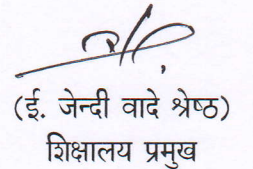 (ई. जेन्दी वादे श्रेष्ठ)
शिक्षालय प्रमुख